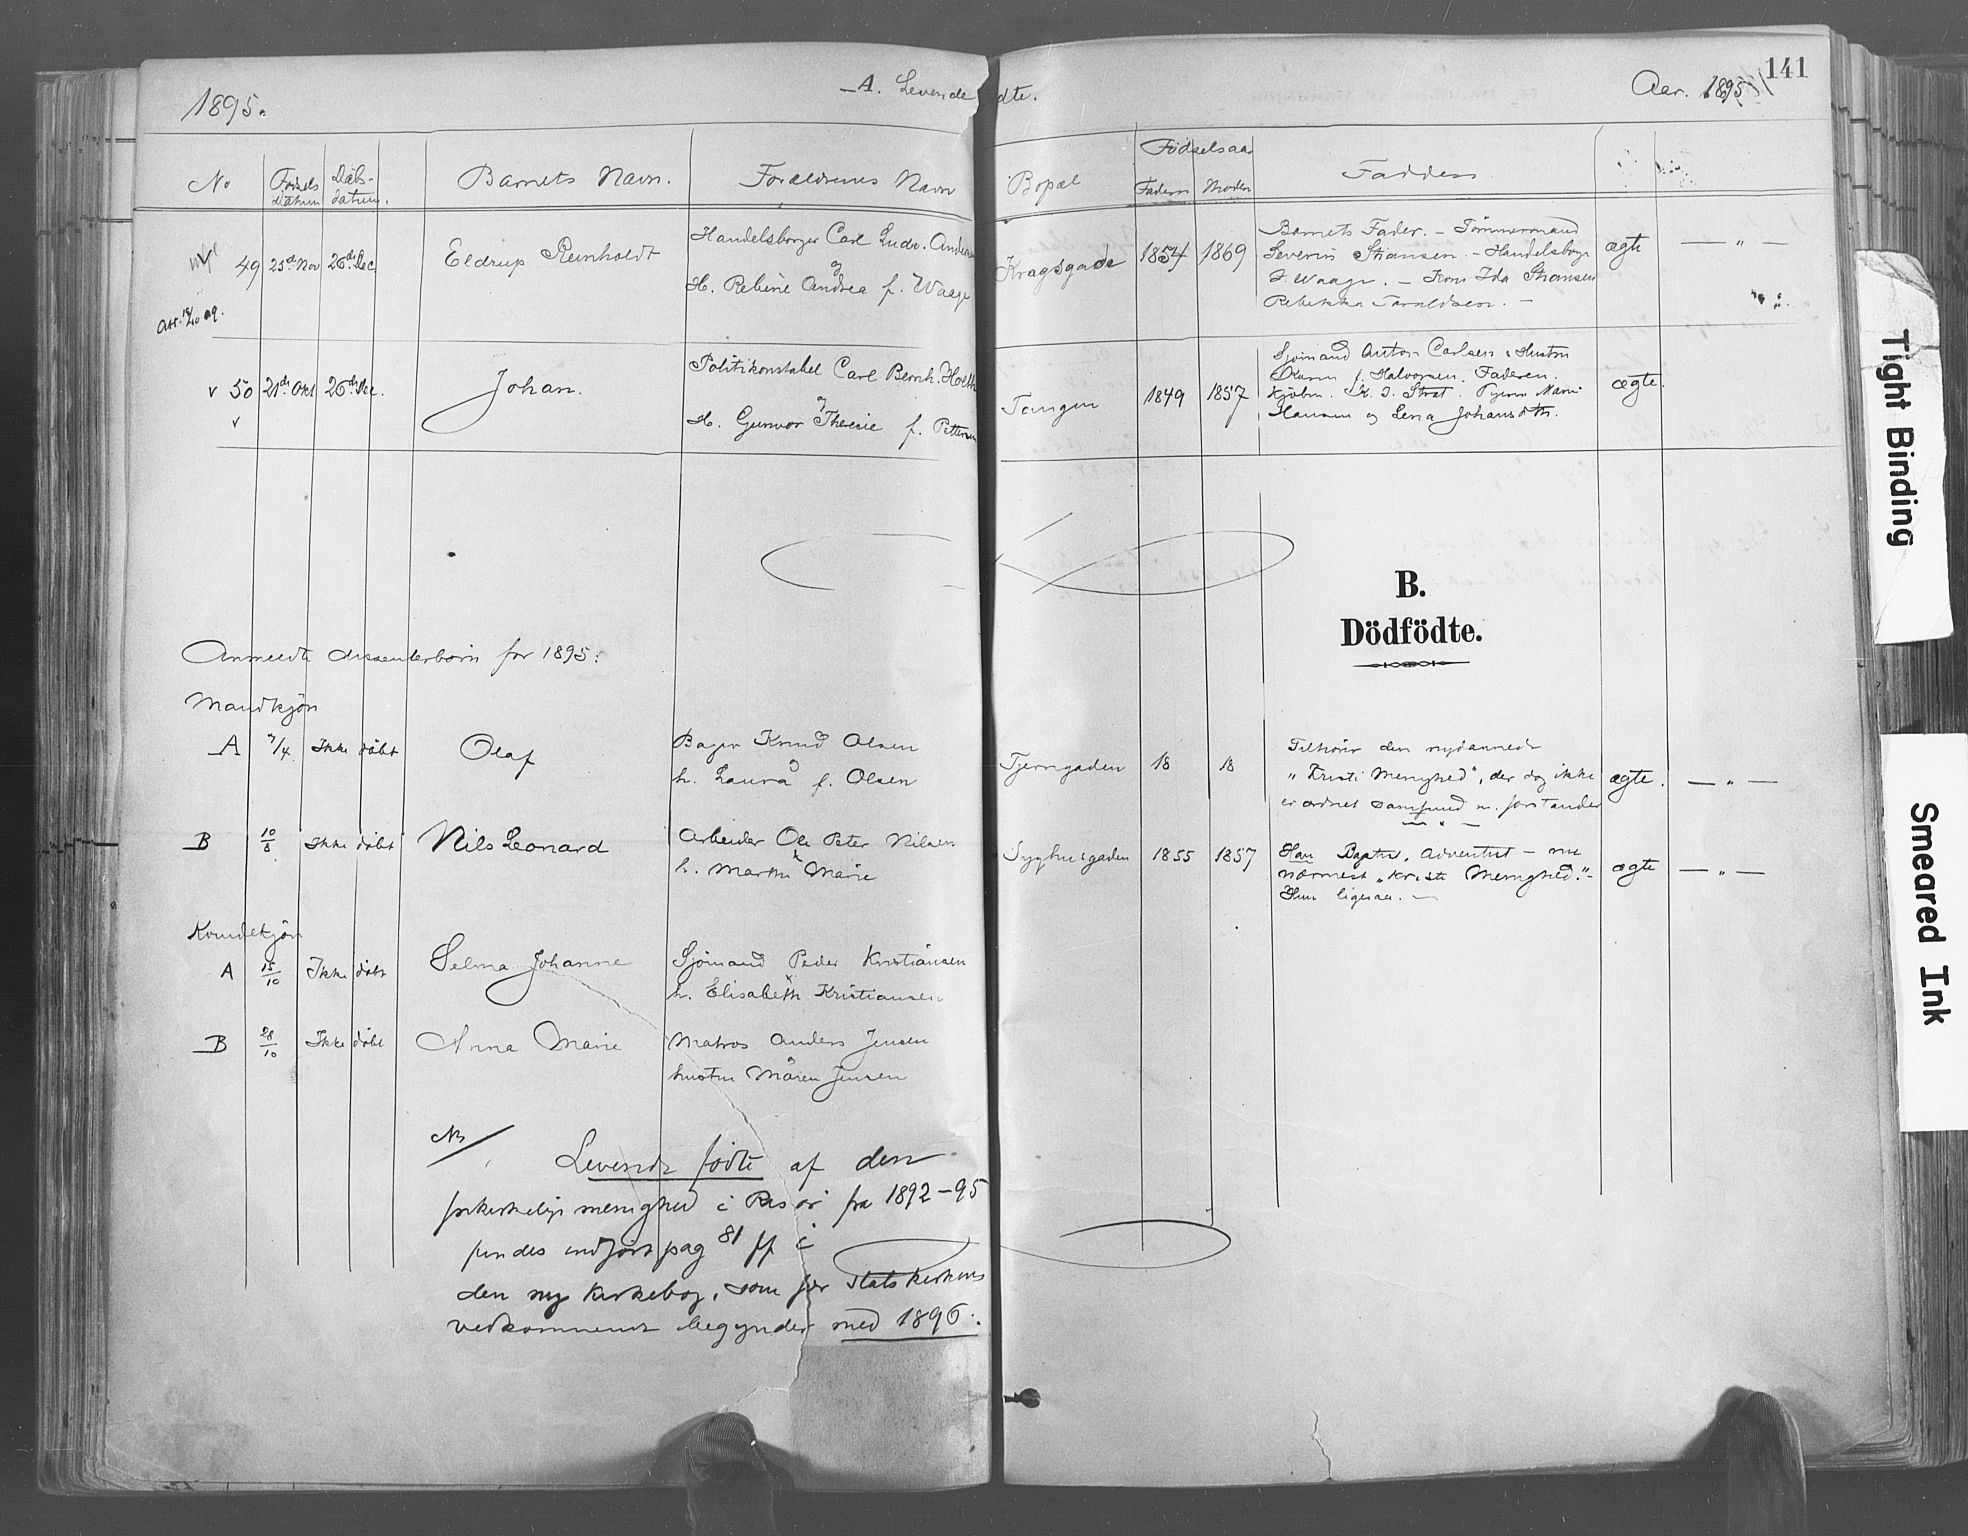 141
1895.
A. Levende
dte.
Aar. 1895
No
Fødsels datum
Døbs-datum.
Barnets Navn.
Forældrenes Navn
Bopæl
Fødselsaar
Faders
Moders
Faddere
49 25de Nov 26de Dec
Eldrup Reinholdt
Handelsborger Carl Ludv. Andersen
og
H. Rebine Andrea f. Waage
Kragsgade
1854 1869
Barnets Fader. – Tømmermand
Severin Stiansen. – Handelsborger
J. Waage. – Kone Ida Stiansen
Rebekka Taraldsen. –
ægte — „ —
v 50 21de Okt 26de Dec.
v
Johan.
Politikonstabel Carl Bernh. Holth
og
H. Gunvor Therese f. Pettersen
Tangen
1849 1857
Sjømand Anton Carlsen & Hustru
f. Halvorsen. Faderen.
Kjøbm.
Hansen og Lena Johansdth.
ægte.
B.
Dödfödte.
Anmeldte dissenterbørn for 1895:
Mandkjøn
A 7/4 Ikke døbt
Olaf
Bager Knud Olsen
og
h. Laura f. Olsen
Tjerngaden
18 18
Tilhører den nydannede
„Kristi Menighed", der dog ikke
er ordnet samfund m. forstander
— „ —
ægte. — „ —
B 10/8 Ikke døbt
Nils Leonard
Arbeider Ole Peter Nilsen
h. Marthe Marie
Syghusgaden
1855 1857
Han Baptist, Adventist – nu
nærmest „Kristi Menighed." –
Hun ligesaa. —
ægte — „ —
Kvindekjøn
A 15/10 Ikke døbt
Selma Johanne
Sjømand Peder Kristiansen
h. Elisabeth Kristiansen
B 28/10 Ikke døbt
Anna Marie
Matros Anders Jensen
og
hustru Maren Jensen
NB
Levende fødte af den
frikirkelige menighed i Risør fra 1892–95
findes indført pag 81 ff i
den ny kirkebog, som for statskirkens
vedkommende begynder med 1896:.
Tight Binding
Smeared Ink